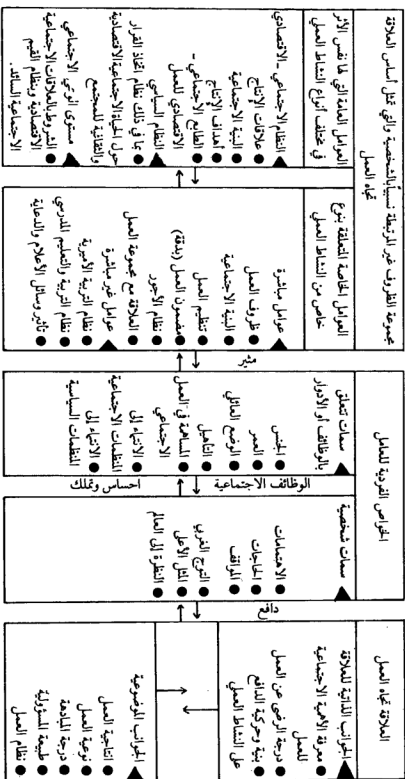 مجموعة الظروف غير المرتبطة نسبياً بالشخصية والتي تمثل أساس العلاقة
تجاه العمل
العوامل العامة التي لها نفس الأثر
في مختلف أنواع النشاط العملي
▲ النظام الاجتماعي ـ الاقتصادي
● علاقات الإنتاج
● أهداف الإنتاج
● البنية الاجتماعية
● الطابع الاجتماعي ـ
الاقتصادي للعمل
▲ النظام السياسي
بما في ذلك نظام اتخاذ القرار
حول الحياة الاجتماعية الاقتصادية
والثقافية للمجتمع
▲ مستوى الوعي الاجتماعي
● المشروط بالعلاقات الاجتماعية
الاقتصادية وبنظام القيم
الاجتماعية السائد.
العوامل الخاصة المتعلقة بنوع
خاص من النشاط العملي
▲ عوامل مباشرة
● ظروف العمل
● البنية الاجتماعية
● تنظيم العمل
● مضمون العمل (بدقة)
● نظام الأجور
● العلاقة مع مجموعة العمل
▲ عوامل غير مباشرة
● نظام التربية الأسرية
● نظام التربية والتعليم المدرسي
● تأثير وسائل الأعلام والدعاية
مثير
الخواص الفردية للعامل
▲ سمات تتعلق
بالوظائف أو الأدوار
● الجنس
● العمر
● الوضع العائلي
● التأهيل
● المساهمة في العمل
الاجتماعي
● الانتماء إلى
المنظمات الاجتماعية
● الانتماء إلى
المنظمات السياسية
الوظائف الاجتماعية
احساس وتملك
▲ سمات شخصية
● الاهتمامات
● الحاجات
● المواقف
● المثل الأعلى
● النظرة إلى العالم
دافع
العلاقة تجاه العمل
▲ الجوانب الذاتية للعلاقة
● معرفة الأهمية الاجتماعية
للعمل
● درجة الرضى عن العمل
● بنية وحركية الدافع
على النشاط العملي
▲ الجوانب الموضوعية
● انتاجية العمل
● نوعية العمل
● درجة المبادهة
● طبيعة المسؤولية
● نظام العمل